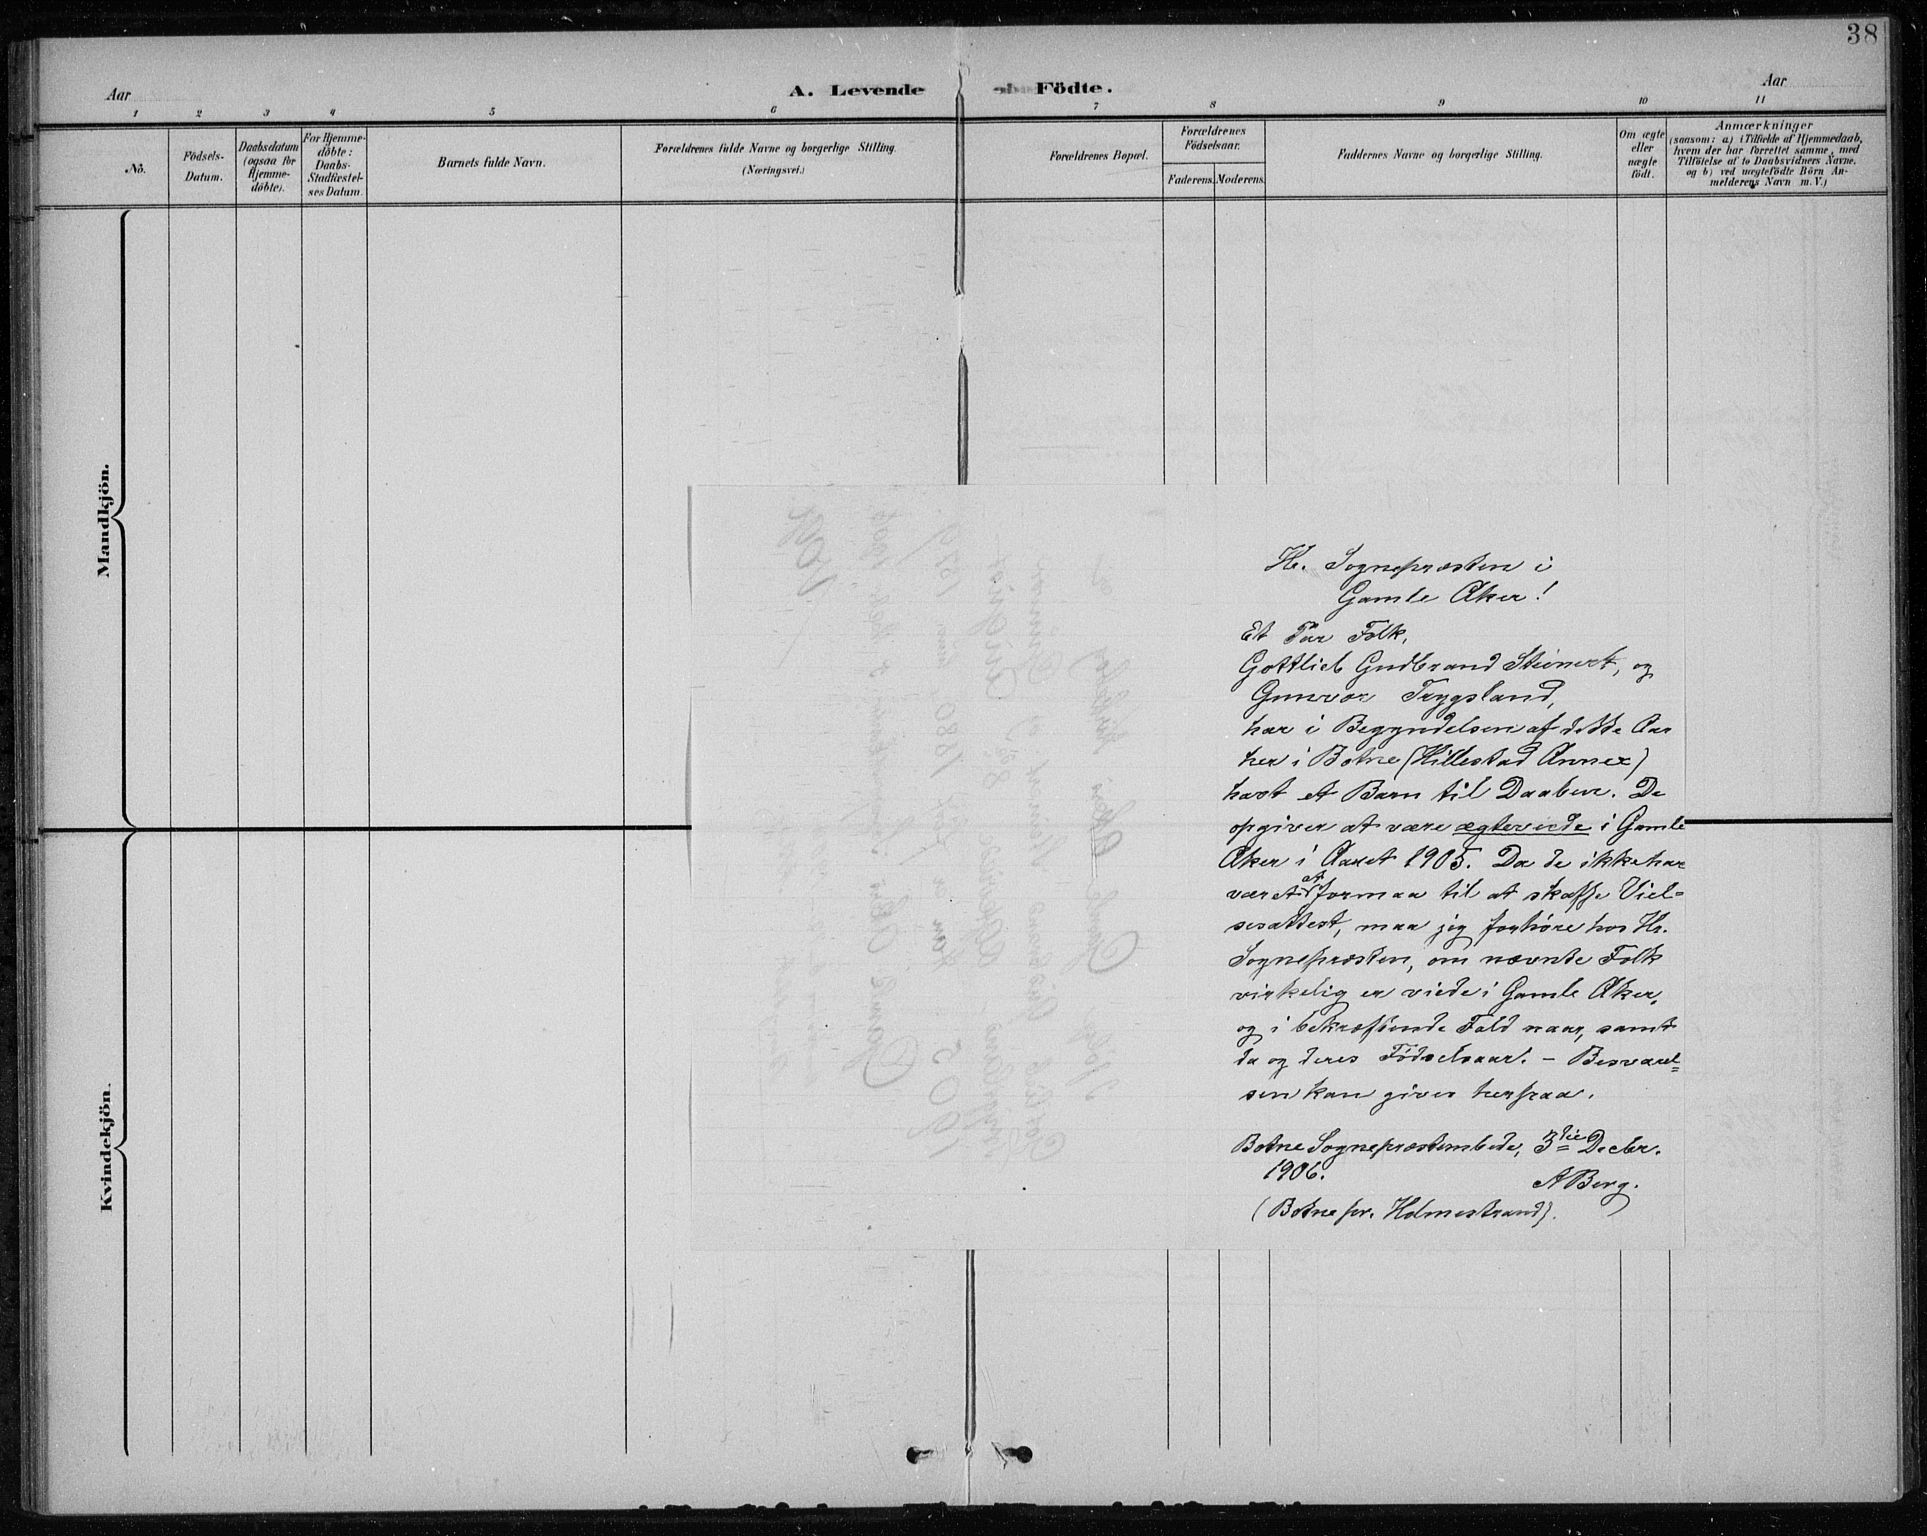 38
Aar
A. Levende Födte.
Aar
1 2 3 4 5 6 7 8 9 10 11
No.
Födsels-
Datum.
Daabsdatum
(ogsaa for
Hjemme-
döbte).
For Hjemme-
döbte:
Daabs-
Stadfæstel-
ses Datum.
Barnets fulde Navn.
Forældrenes fulde Navne og borgerlige Stilling.
(Næringsvei.)
Forældrenes Bopæl.
Forældrenes
Födselsaar.
Faderens. Moderens.
Faddernes Navne og borgerlige Stilling.
Om ægte
eller
uægte
födt.
Anmærkninger
(saasom: a) i Tilfælde af Hjemmedaab,
hvem der har forrettet samme, med
Tilföielse af to Daabsvidners Navne.
og b) ved uægtefödte Börn An-
melderens Navn m. V.)
Mandkjön.
Kvindekjön.
Hr. Sognepræsten i
Gamle Aker!
Et Par Folk,
Gottlieb Gudbrand Steinert, og
Gunvor Trygsland,
har i Begyndelsen af dette Aar
her i Botne (Hillestad Annex)
havt et Barn til Daaben. De
opgiver at være ægteviede i Gamle
Aker i Aaret 1905. Da de ikke har
været at formaa til at skaffe Viel=
sesattest, maa jeg forhøre hos Hr.
Sognepræsten, om nævnte Folk
virkelig er viede i Gamle Aker,
og i bekræftende Fald naar, samt
da og deres Fødselsaar. – Besvarel=
sen kan gives herpaa.
Botne Sognepræstembede, 3die Decbr.
1906.
A Berg.
(Botne pr. Holmestrand).